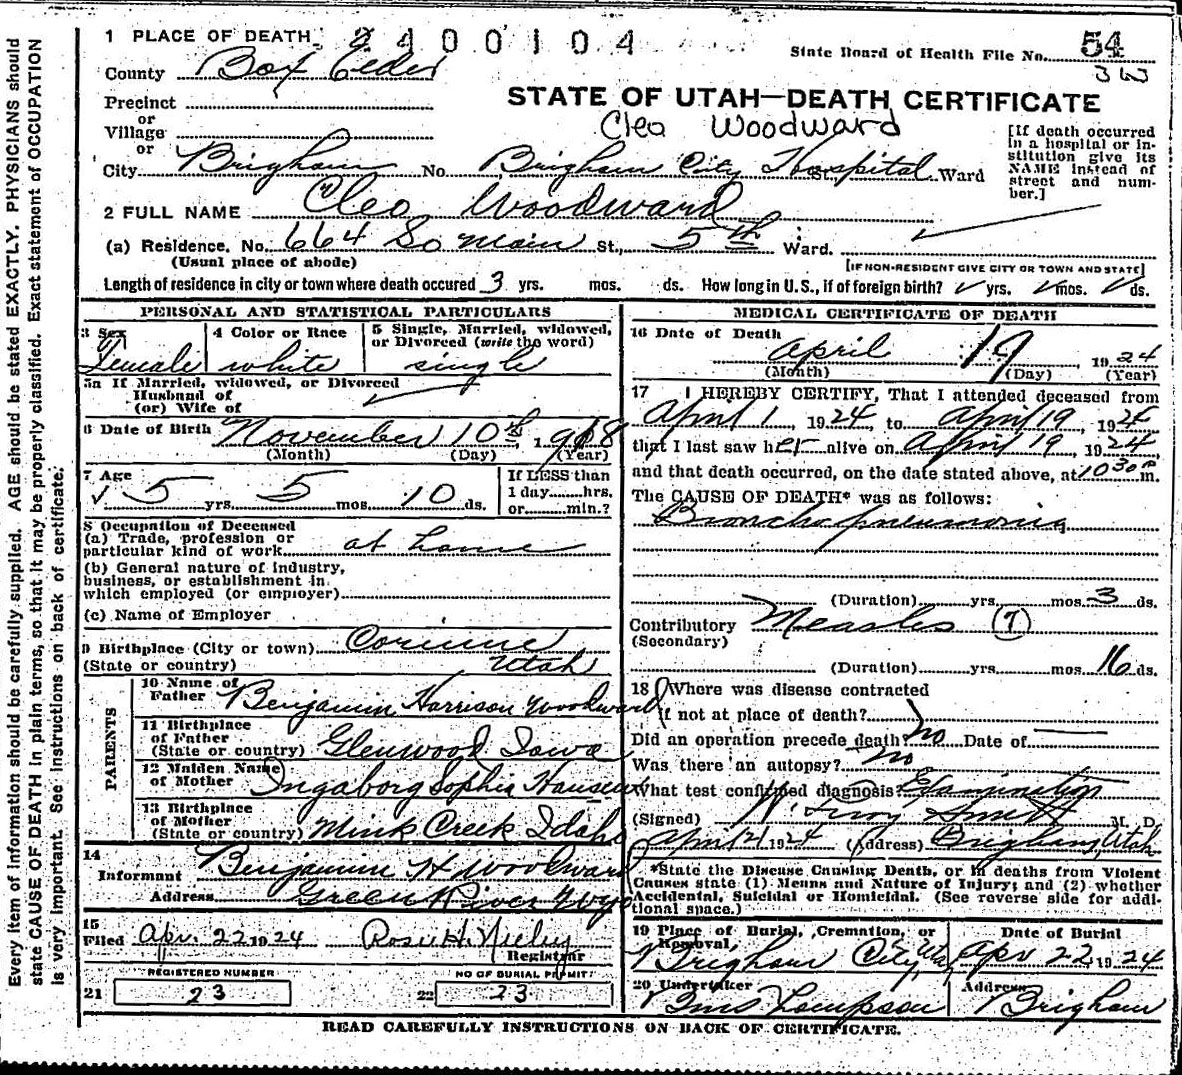 1 PLACE OF DEATH 2400104
State Board of Health File No. 54
County Box Elder
3 W
Precinct
or
Village
or
STATE OF UTAH—DEATH CERTIFICATE
Cleo Woodward
[If death occurred
in a hospital or in-
stitution give its
NAME instead of
street and num-
ber.]
City Brigham No. Brigham City Hospital St. Ward
2 FULL NAME Cleo Woodward
(a) Residence. No. 664 So Main St., 5th Ward.
(Usual place of abode)
[IF NON-RESIDENT GIVE CITY OR TOWN AND STATE]
Length of residence in city or town where death occured 3 yrs. mos. ds. How long in U.S., if of foreign birth? ✓ yrs. ✓ mos. ✓ ds.
PERSONAL AND STATISTICAL PARTICULARS
3 Sex
Female
4 Color or Race
white
5 Single, Married, widowed,
or Divorced (write the word)
single
5a If Married, widowed, or Divorced
Husband of
(or) Wife of ✓
6 Date of Birth November 10th 1918
(Month) (Day) (Year)
7 Age
✓ 5 yrs. 5 mos. 10 ds.
If LESS than
1 day hrs.
or min.?
8 Occupation of Deceased
(a) Trade, profession or
particular kind of work at home
(b) General nature of industry,
business, or establishment in
which employed (or employer)
(c) Name of Employer
9 Birthplace (City or town) Corinne
(State or country) Utah
PARENTS
10 Name of
Father Benjamin Harrison Woodward
11 Birthplace
of Father
(State or country) Glenwood Iowa
12 Maiden Name
of Mother Ingaborg Sophia Hansen
13 Birthplace
of Mother
(State or country) Mink Creek Idaho
14
Informant Benjamin H Woodward
Address Green River Wyo
15
Filed Apr. 22 1924 Rose H.
Registrar
REGISTERED NUMBER
21 23
NO OF BURIAL PERMIT
22 23
MEDICAL CERTIFICATE OF DEATH
16 Date of Death
April 19, 1924
(Month) (Day) (Year)
17 I HEREBY CERTIFY, That I attended deceased from
April 1, 1924, to April 19, 1924
that I last saw her alive on April 19, 1924
and that death occurred, on the date stated above, at 10 30 m.
The CAUSE OF DEATH* was as follows:
Broncho pneumonia
(Duration) yrs. mos. 3 ds.
Contributory Measles (7)
(Secondary)
(Duration) yrs. mos. 16 ds.
18 Where was disease contracted
if not at place of death?
Did an operation precede death? no Date of —
Was there an autopsy? no
What test confirmed diagnosis? Examination
(Signed) W. Leroy Smith M. D.
April 21 1924 (Address) Brigham, Utah
*State the Disease Causing Death, or in deaths from Violent
Causes state (1) Means and Nature of Injury; and (2) whether
Accidental, Suicidal or Homicidal. (See reverse side for addi-
tional space.)
19 Place of Burial, Cremation, or
Removal,
Brigham City, Utah
Date of Burial
Apr 22, 1924
20 Undertaker
Thompson
Address
Brigham
READ CAREFULLY INSTRUCTIONS ON BACK OF CERTIFICATE.
Every item of information should be carefully supplied. AGE should be stated EXACTLY. PHYSICIANS should
state CAUSE OF DEATH in plain terms, so that it may be properly classified. Exact statement of OCCUPATION
is very important. See instructions on back of certificate.